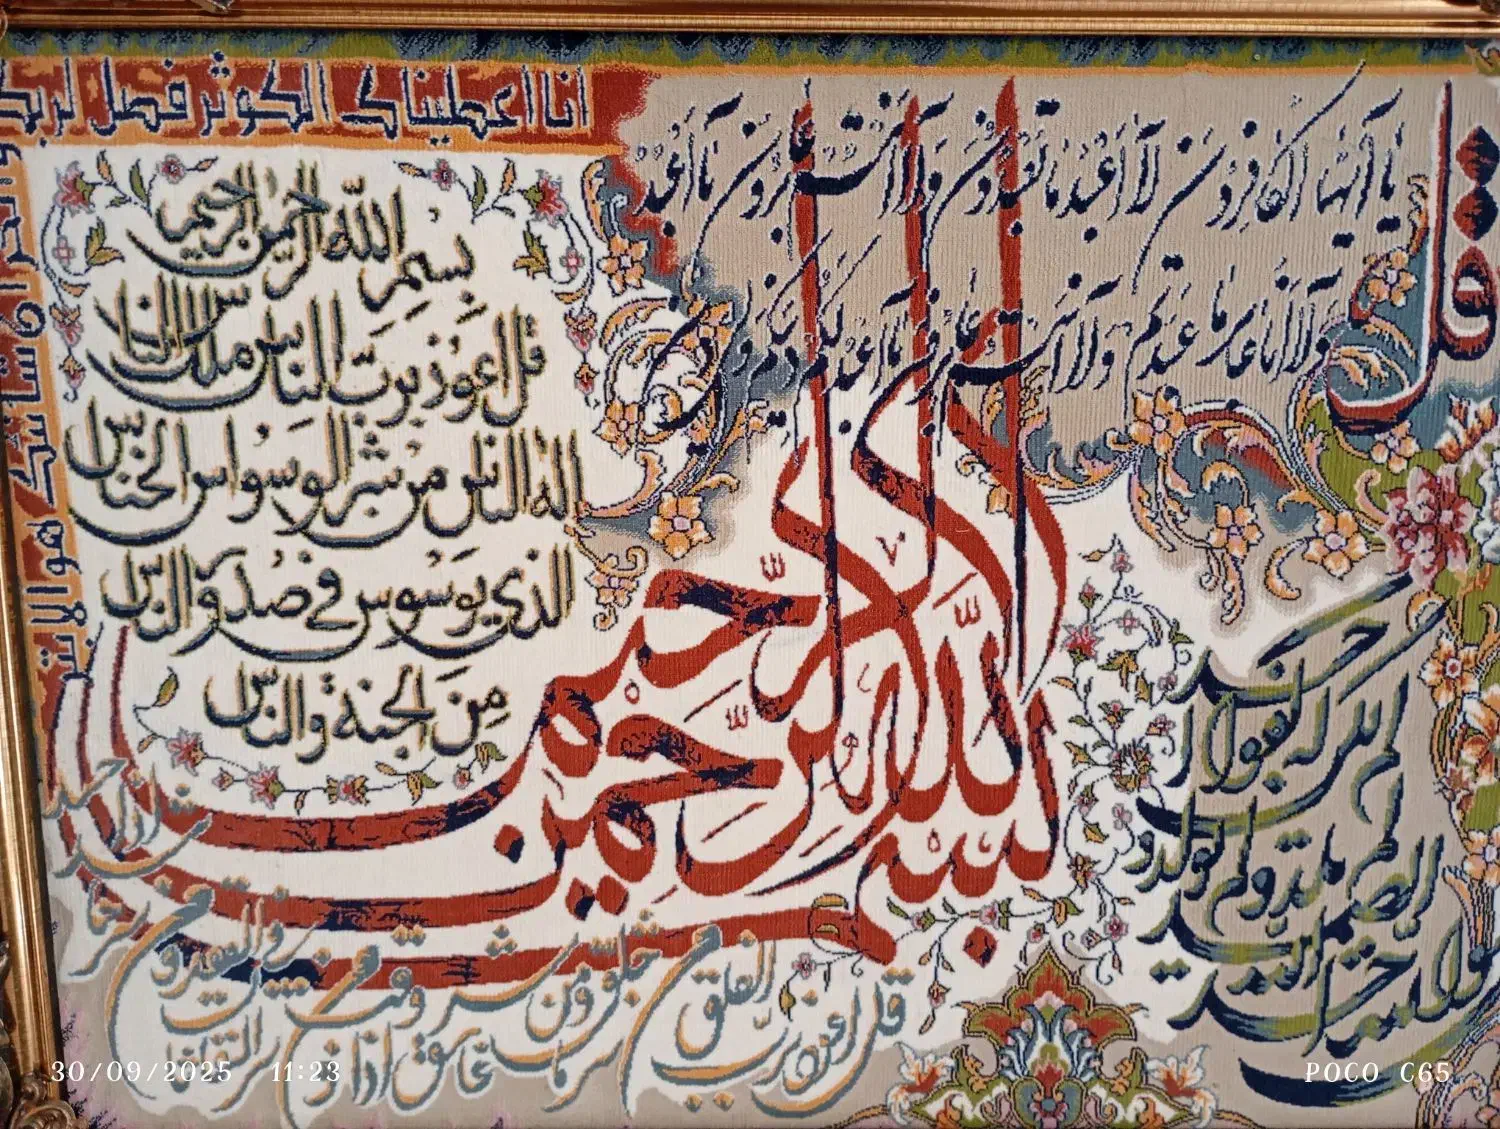 انا اعطيناك الكوثر فصل لربك
وانحر ان شانئك
هو الابتر
قل يا ايها الكافرون لا اعبد ما تعبدون ولا انتم عابدون ما اعبد
ولا انا عابد ما عبدتم ولا انتم عابدون ما اعبد لكم دينكم ولي دين
بسم الله الرحمن الرحيم
قل اعوذ برب الناس ملك الناس
اله الناس من شر الوسواس الخناس
الذي يوسوس في صدور الناس
من الجنة والناس
بسم الله الرحمن الرحيم
قل اعوذ برب الفلق من شر ما خلق ومن شر غاسق اذا وقب ومن شر النفاثات في العقد ومن شر حاسد اذا حسد
الله الصمد لم يلد ولم يولد و لم يكن له كفوا احد
30/09/2025 11:23
POCO C65